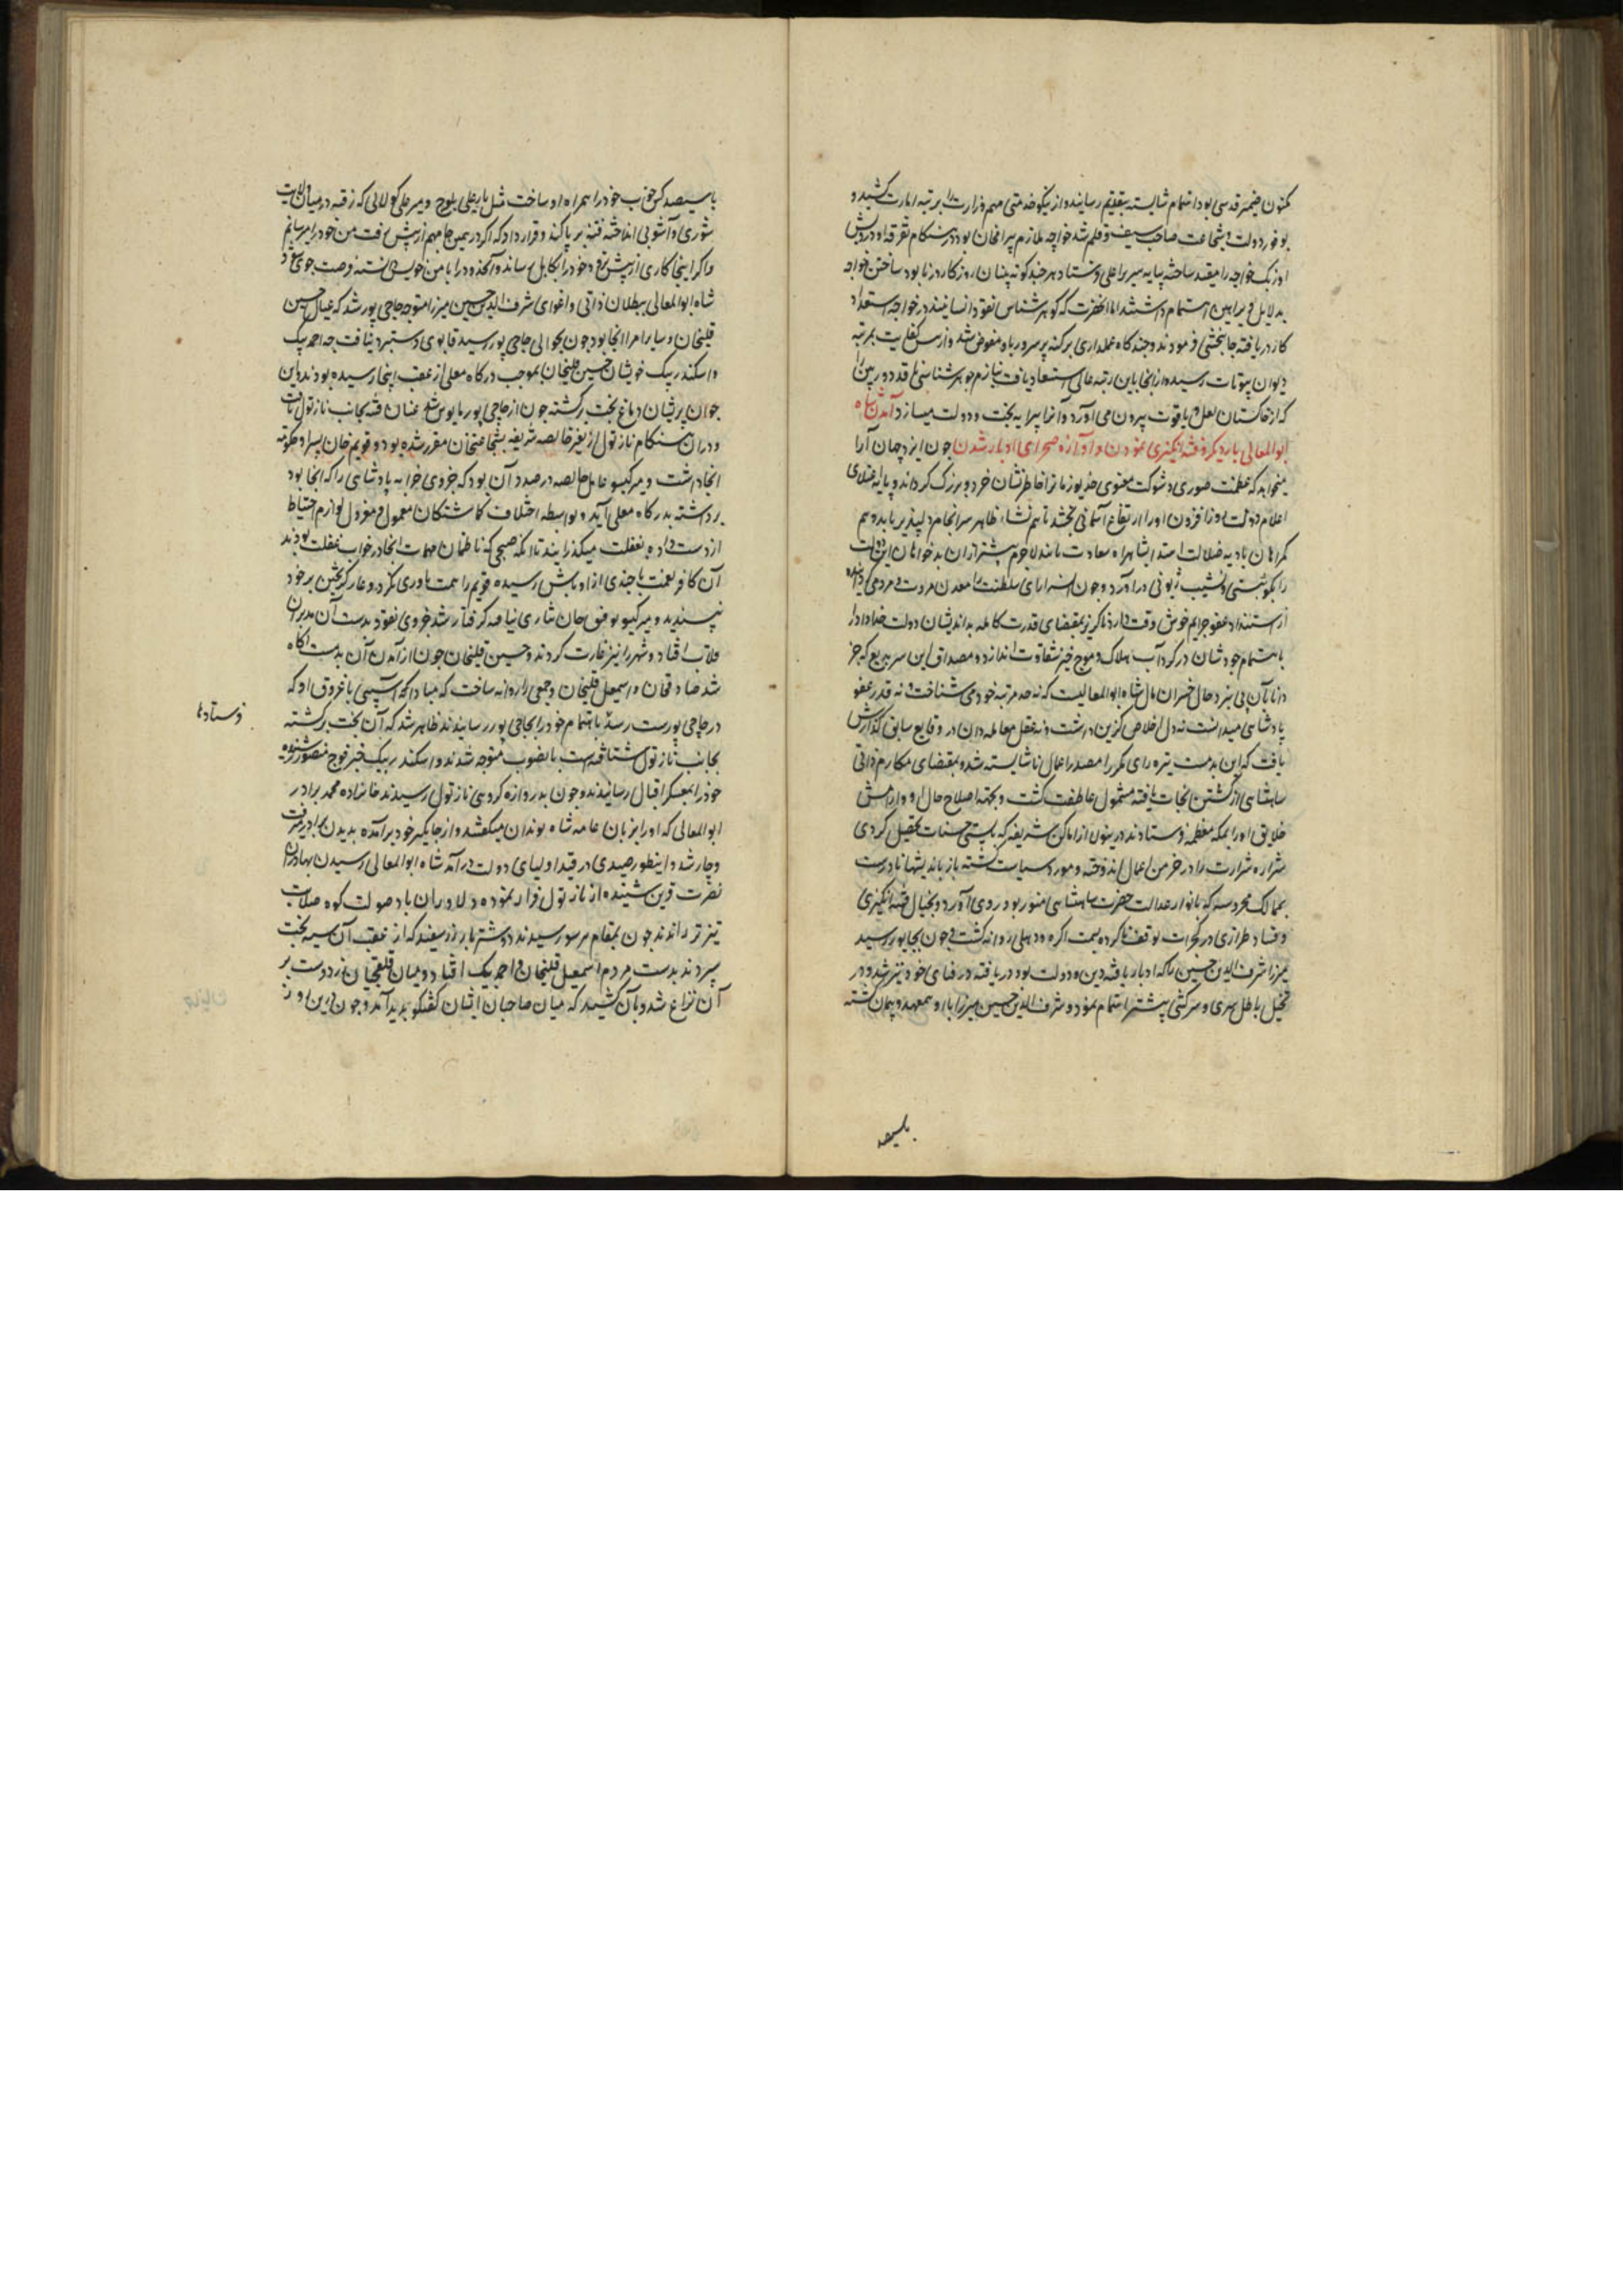 مکنون ضمیر قدسی بود اهتمام شایسته بتقدیم رسانیده از نیکو خدمتی مهم وزارت را برتبه امارت کشید و
بوفور دولت و شجاعت صاحب سیف و قلم شد خواجه ملازم بیرامخان بود در هنکام تفرقه او درویش
اوزبک خواجه را مقید ساخته پبایه سریر اعلی فرستاد هرچند کوته بینان روزکار در نابود ساختن خواجه
بدلایل و براهین اهتمام داشتند اما انحضرت که کوهر شناس نقود انسانیند در خواجه استعداد
کار دریافته جانبخشی فرمودند و چندکاه عملداری پرکنه پرسرور باو مفوض شد و از بس کفایت بمرتبه
دیوان بیوتات رسیده از انجا باین رتبه عالی استسعاد یافت نیازم جوهر شناسی نقد دوربین را
که از خاکستان لعل و یاقوت بیرون می آورد و آنرا پیرایه بخت و دولت میسازد آمدن شاه
ابوالمعالی بار دیکر و فتنه انکیزی نمودن و آواره صحرای ادبار شدن چون ایزد جهان آرا
میخواهد که عظمت صوری و شوکت معنوی خدیو زمانرا خاطرنشان خرد و بزرک کرداند و پایه اعتلای
اعلام دولت روز افزون اورا ارتفاع آسمانی بخشد تا هم نشاء ظاهر سرانجام دلپذیر یابد و هم
کمراهان بادیه ضلالت اهتدا بشاهراه سعادت نمایند لاجرم پیشتر ازان بدخواهان این دولت
را نکو پستی و نشیب زبونی درآورد و چون سراپای سلطنت معدن مروت و مردمی
از استلذاذ عفو جرایم خوش وقت دارد ناکزیر بمقتضای قدرت کامله بداندیشان دولت خداداد را
باهتمام خودشان در کرداب هلاک و موج خیز شقاوت اندازد و مصداق این سر بدیع که جز
دانا بآن پی نبرد حال خسران مآل شاه ابوالمعالیست که نه حد مرتبه خود می شناخت و نه قدر عفو
پادشاهی میدانست نه دل اخلاص کزین داشت و نه عقل معامله دان در وقایع سابق کذارش
یافت که این بدمست تیره رای مکررا مصدر اعمال ناشایسته شد و بمقتضای مکارم ذاتی
شاهنشاهی از کشتن نجات یافته مشمول عاطفت کشت و بجهة اصلاح حال او و آرامش
خلایق اورا بمکه معظمه فرستادند درینولا ازاماکن شریفه که بایستی حسنات تحصیل کردی
شراره شرارت را در خرمن اعمال اندوخته و مورد سیاست کشته باز باندیشهای نادرست
بممالک محروسه که بانوار عدالت حضرت شاهنشاهی منور بود روی آورد و بخیال فتنه انکیزی
و فساد طرازی در کجرات توقف ناکرده بسمت اکره و دهلی روانه کشت و چون بجالور رسید
میرزا شرف الدین حسین را که ادبار یافته دین و دولت بود دریافته در فنای خود تیزتر شد و در
تخیل باطل سری و سرکشی پیشتر اهتمام نمود و شرف الدین حسین میرزا با او همعهد و پیمان کشته
بلسیصد
باسیصد کس خوب خود را همراه او ساخت مثل یار علی بلوچ و میر علی کولابی که رفته در میان ولایت
شوری و آشوبی انداخته فتنه بر پا کند و قرار داد که اکر در همین جا مهم از پیش رفت من خود را میرسانم
و اکر اینجا کاری از پیش نرود خود را بکابل رساند
شاه ابوالمعالی ببطلان ذاتی و اغوای شرف الدین حسین میرزا متوجه حاجی پور شد که عیال حسین
قلیخان و سایر امرا انجا بود چون بحوالی حاجی پور رسید قابوی دستبرد نیافت چه احمد بیک
و اسکندر بیک خویشان حسین قلیخان بموجب درکاه معلی از عقب اینجا رسیده بودند این
جوان پریشان دماغ بخت برکشته چون از حاجی پور مایوس شد عنان فتنه بجانب نارنول تافت
و دران هنکام نارنول از تغیر خالصه شریفه بشجاعتخان مقرر شده بود و قویم خان پسر او حکومت
انجا داشت و میر کیسو عامل خالصه در صدد آن بود که جزوی خزانه پادشاهی را که انجا بود
برداشته بدرکاه معلی آید و بواسطه اختلاف کماشتکان معمول و معزول لوازم احتیاط
از دست داده بغفلت میکذرانیدند تا انکه صبحی که ناظمان مهمات انجا در خواب غفلت بودند
آن کافر نعمت با چندی از اوباش رسیده قویم را همت یاوری نکرد و عار کریختن بر خود
پسندید و میر کیسو توفیق جان نثاری نیافته کرفتار شد جزوی نقود بدست آن مدبران
ملاب افتاد و شهر را نیز غارت کردند و حسین قلیخان چون از آمدن آن بدمست اکاه
شد صادقخان و اسمعیل قلیخان و جمعی را روانه ساخت که مبادا که آسیبی باغروق او که
در حاجی پورست رسد باهتمام خود را بحاجی پور رسانیدند ظاهر شد که آن بخت برکشته
بجانب نارنول شتافته است بانصوب متوجه شدند و اسکندر بیک خبر فوج منصور شنیده
خود را بمعسکر اقبال رسانیدند و چون بدروازه کروهی نارنول رسیدند خانزاده محمد برادر
ابوالمعالی که اورا بزبان عامه شاه لوندان میکفتند و از جایکیر خود برآمده بدیدن برادر میرفت
دچار شد و اینطور صیدی در قید اولیای دولت درآمد شاه ابوالمعالی رسیدن بهادران
نصرت قرین شنیده از نارنول فرار نموده دلاوران باد صولت کوه صلابت
تیزتر راندند چون بمقام هرسور رسیدند دو شتر بار زر سفید که از عقب آن سیه بخت
میبردند بدست مردم اسمعیل قلیخان و احمد بیک افتاد و میان قلقچیان زردوست بر
آن نزاع شد و بآن کشید که میان صاحبان ایشان کفتکو پدید آمد و چون این روز
فرستادها